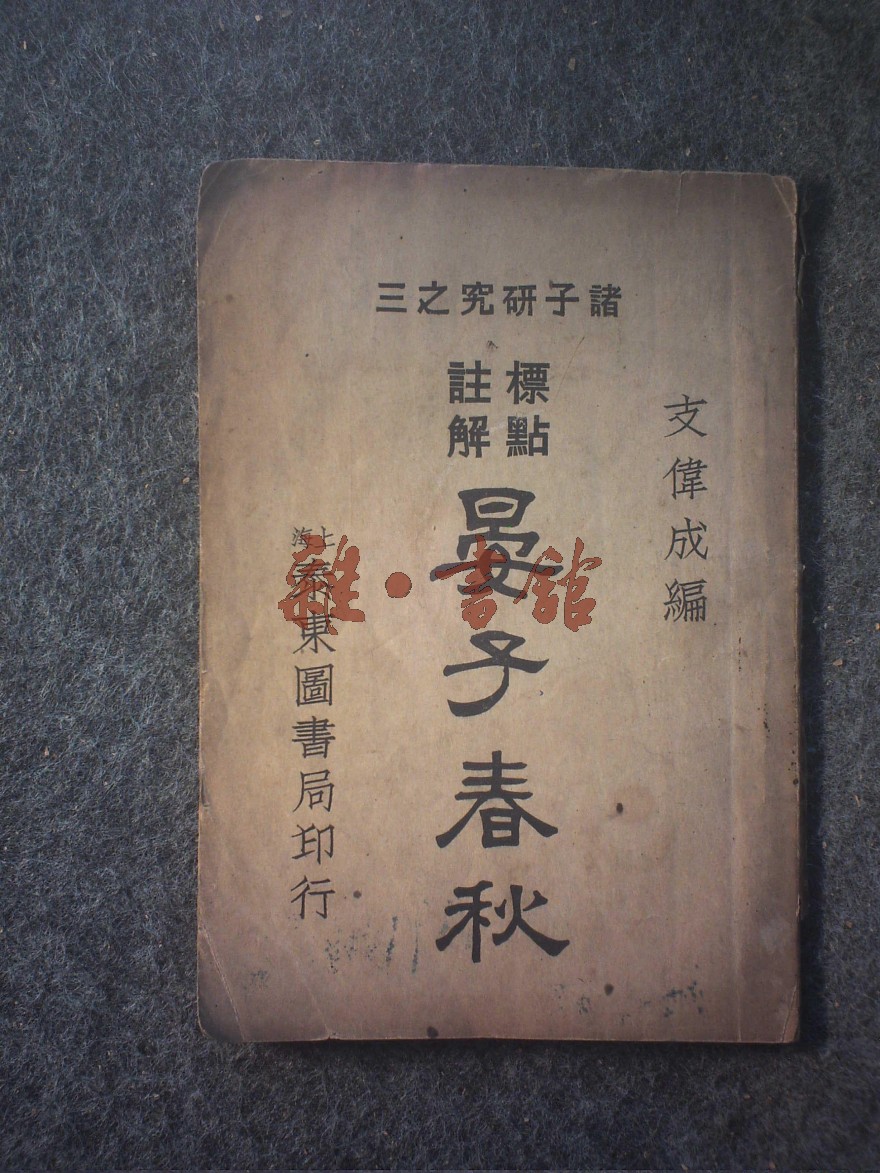 諸子研究之三
標點
註解
晏子春秋
支偉成編
上海
泰東圖書局印行
雜·書館